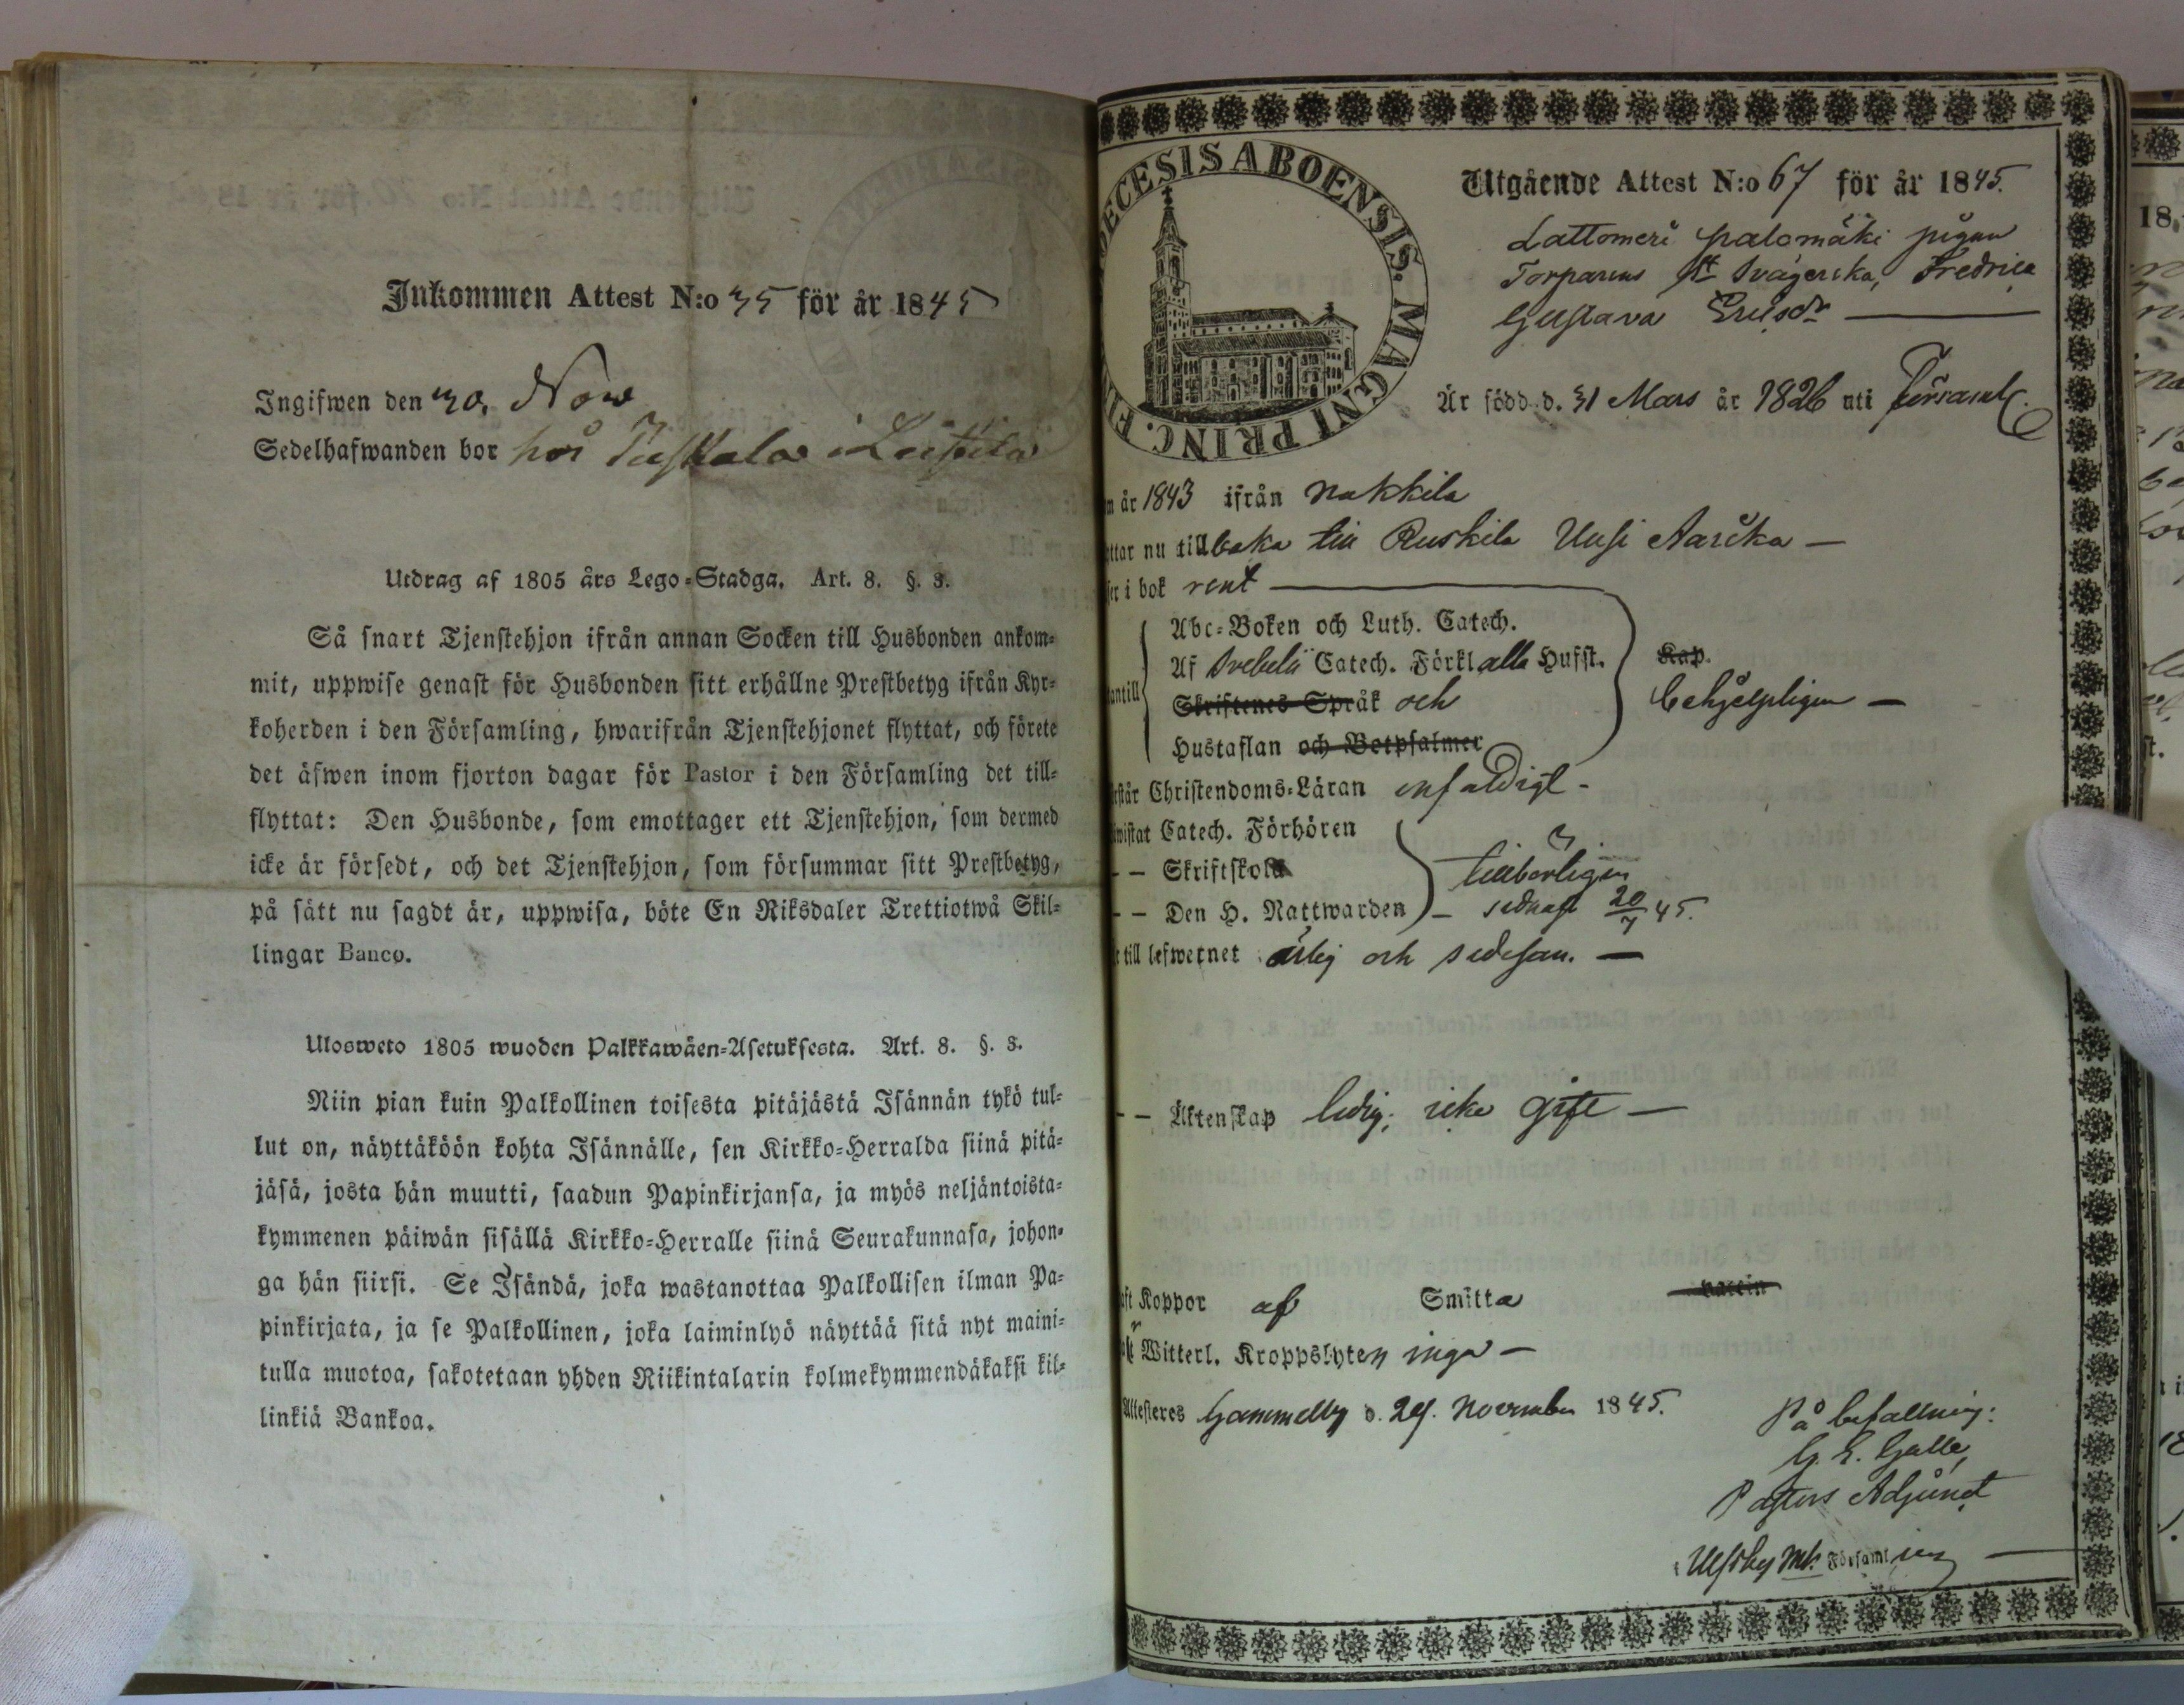 Inkommen Attest N:o 35 för år 1845
Ingifwen den 30. Nov
Sedelhafwanden bor hos i Leistilä
Utdrag af 1805 års Lego-Stadga. Art. 8. §. 3.
Så snart Tjenstehjon ifrån annan Socken till Husbonden ankom-
mit, uppwise genast för Husbonden sitt erhållne Prestbetyg ifrån Kyr-
koherden i den Församling, hwarifrån Tjenstehjonet flyttat, och förete
det äfwen inom fjorton dagar för Pastor i den Församling det till-
flyttat: Den Husbonde, som emottager ett Tjenstehjon, som dermed
icke är försedt, och det Tjenstehjon, som försummar sitt Prestbetyg,
på sätt nu sagdt är, uppwisa, böte En Riksdaler Trettiotwå Skil-
lingar Banco.
Ulosweto 1805 wuoden Palkkawäen-Asetuksesta. Art. 8. §. 3.
Niin pian kuin Palkollinen toisesta pitäjästä Isännän tykö tul-
lut on, näyttäköön kohta Isännälle, sen Kirkko-Herralda siinä pitä-
jäsä, josta hän muutti, saadun Papinkirjansa, ja myös neljäntoista-
kymmenen päiwän sisällä Kirkko-Herralle siinä Seurakunnasa, johon-
ga hän siirsi. Se Isändä, joka wastanottaa Palkollisen ilman Pa-
pinkirjata, ja se Palkollinen, joka laiminlyö näyttää sitä nyt maini-
tulla muotoa, sakotetaan yhden Riikintalarin kolmekymmendäkaksi kil-
linkiä Bankoa.
ECESIS ABOENSIS. MAGNI PRINC. FI
Utgående Attest N:o 67 för år 1845.
Lattomeri Palomäki pigan
Torparens Svägerska, Fredrica
Gustava Ericsdr
Är född d. 31 Mars år 1826 uti
år 1843 ifrån Nakkila
ttar nu tillbaka till Ruskila Uusi Aarikka
i bok rent
Abc-Boken och Luth. Catech.
Af Svebelii Catech. Förkl alla Hufst.
antill Skriftenes Språk och
Hustaflan och Botpsalmer
Kap.
behjelpligen
står Christendoms-Läran enfaldigt
wistat Catech. Förhören
- - Skriftskola
- - Den H. Nattwarden
tillbörligen
sednast 20/7 45.
till lefwernet ärlig och sedesam.
- - Äktenskap ledig, icke gift
Koppor af Smitta
Witterl. Kroppslyten inga
Attesteres Gammelby d. 29. November 1845.
På befallning:
G. E. Galle,
Pastors Adjunct
i Ulfsby Mk. Församling